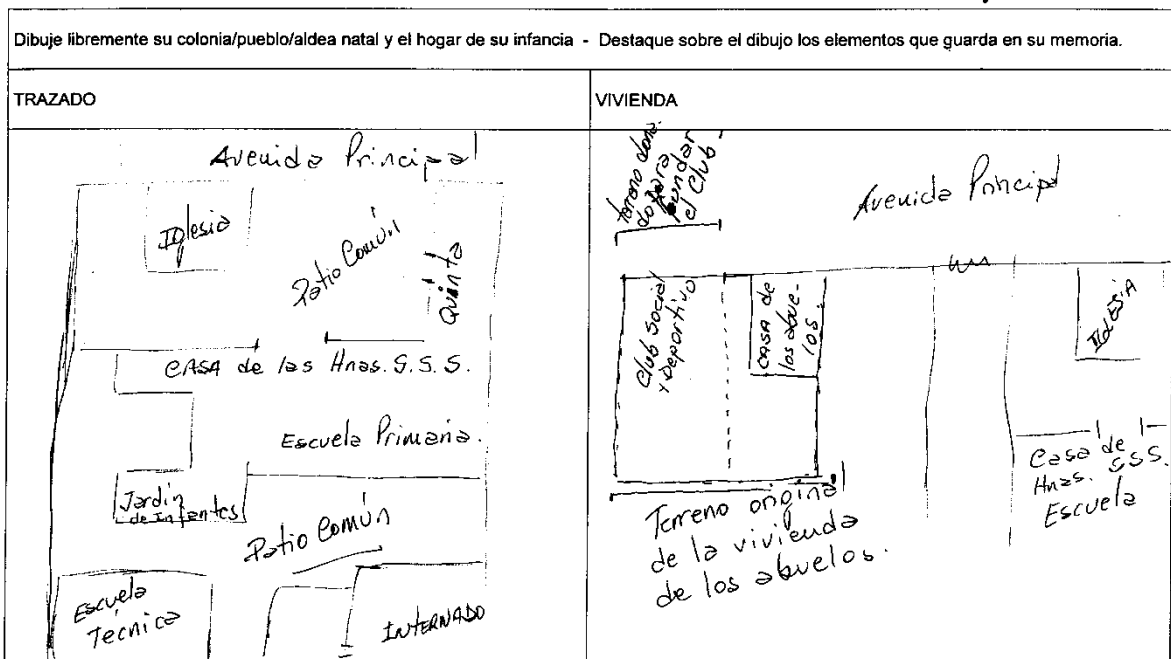 Dibuje libremente su colonia/pueblo/aldea natal y el hogar de su infancia - Destaque sobre el dibujo los elementos que guarda en su memoria.
TRAZADO
Avenida Principal
Iglesia
Patio Común
Quinta
CASA de las Hnas. S.S.S.
Escuela Primaria.
Jardín
de Infantes
Patio Común
Escuela
Técnica
INTERNADO
VIVIENDA
terreno dona-
do para
fundar
el Club-
Avenida Principal
Club Social
y Deportivo
CASA de
los abue-
los.
IGLESIA
Casa de
Hnas. SSS.
Escuela
Terreno original
de la vivienda
de los abuelos.